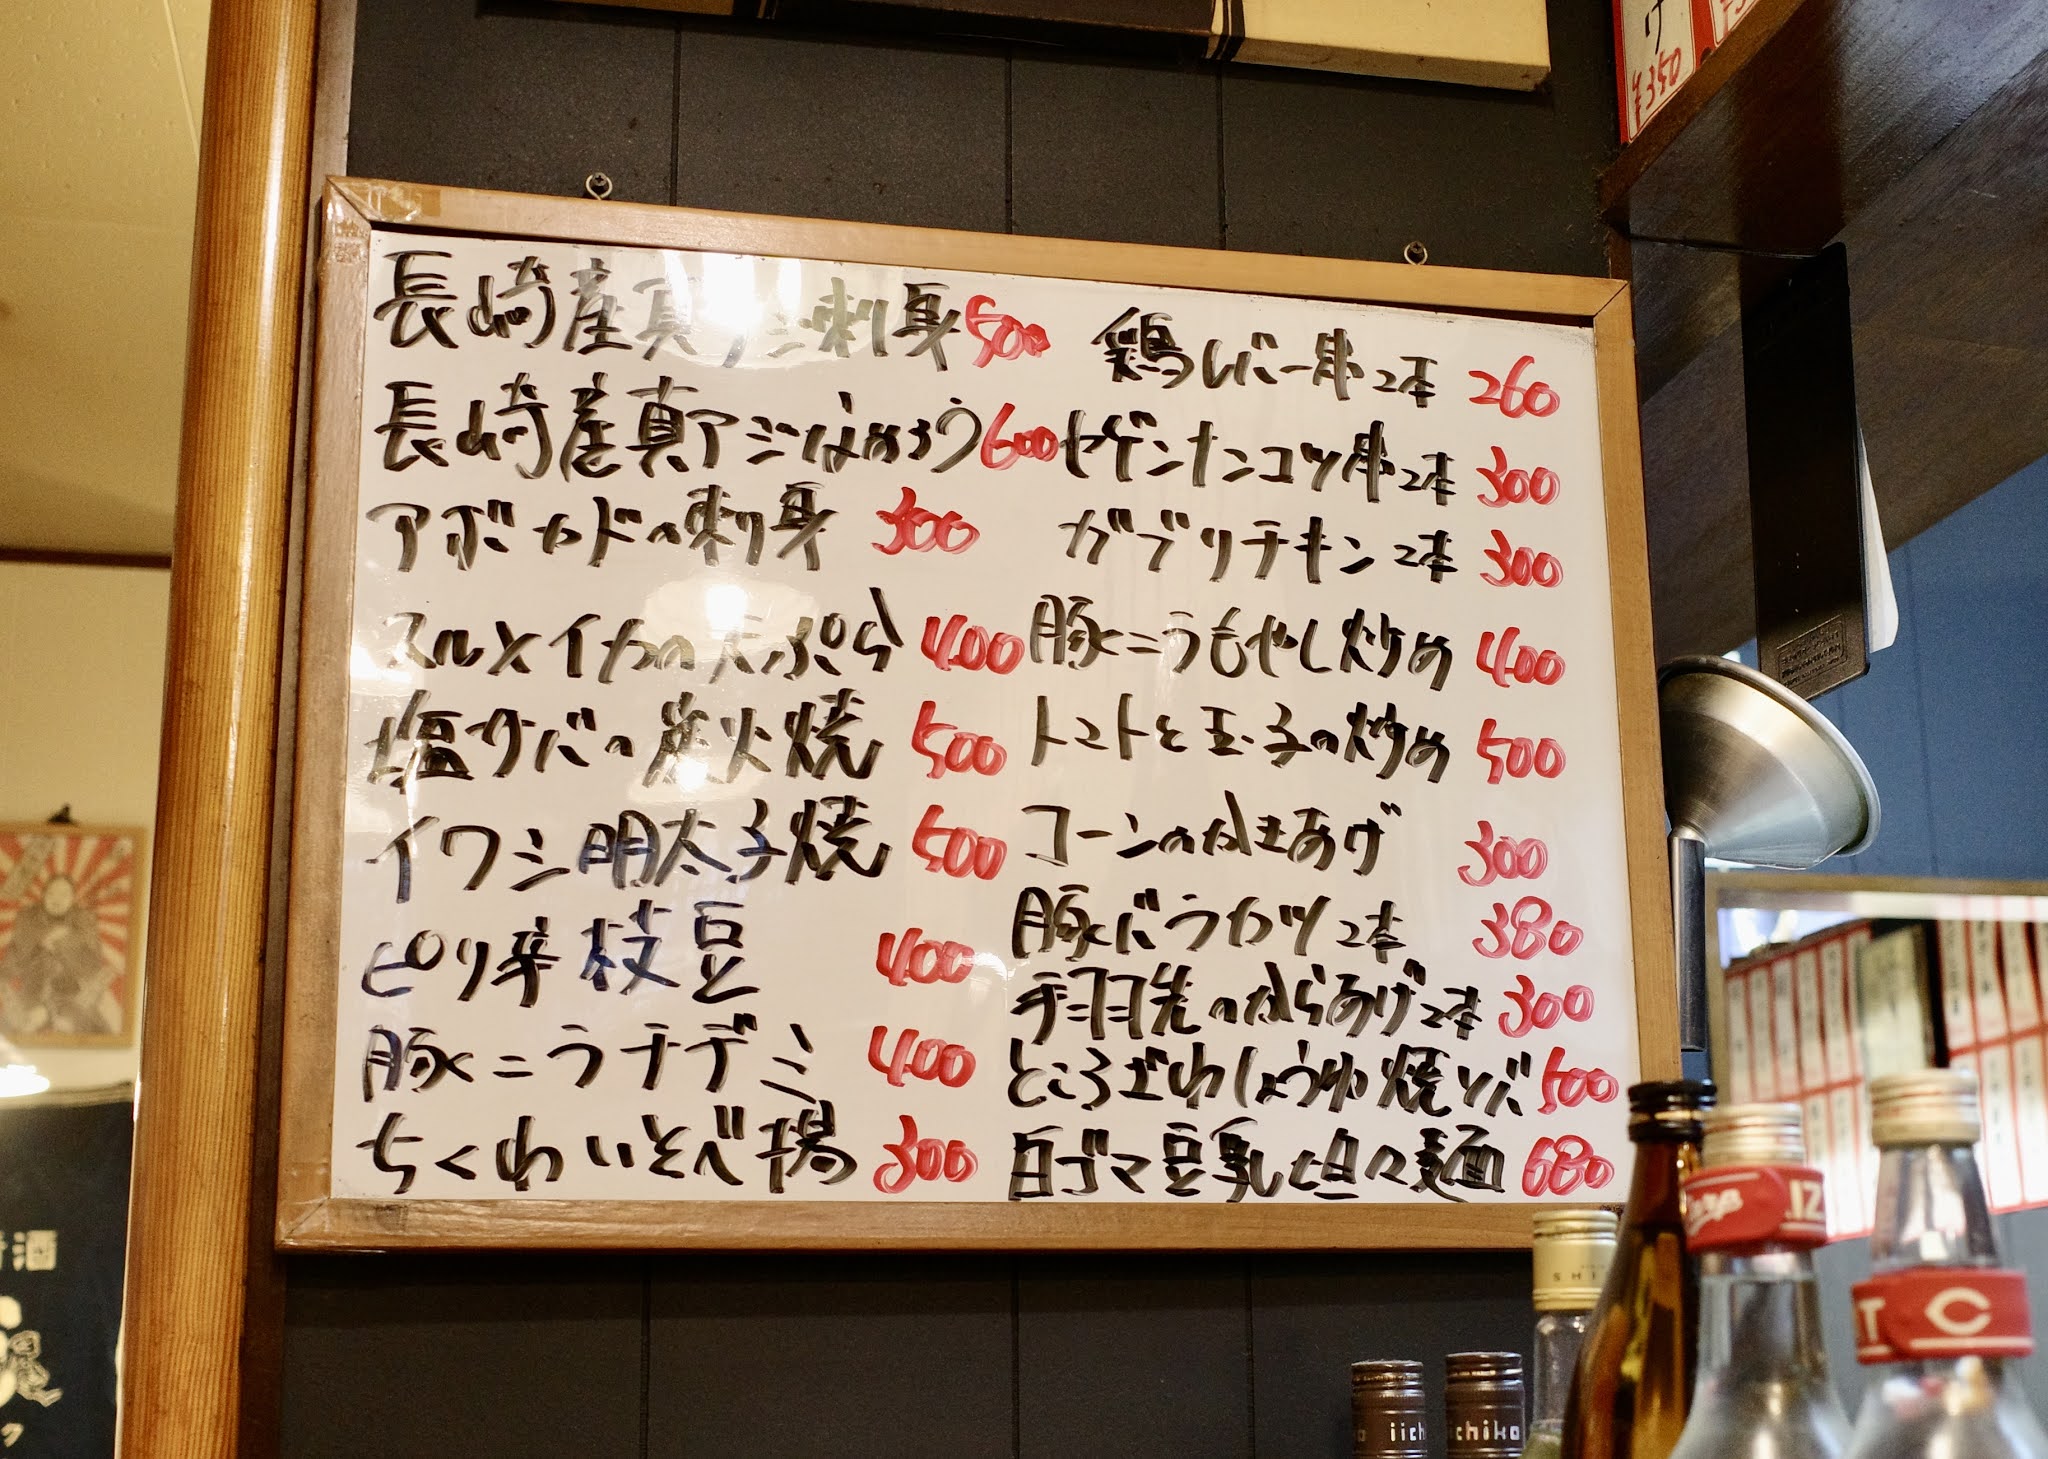 長崎産真アジ刺身 500
長崎産真アジなめろう 600
アボカドの刺身 300
スルメイカの天ぷら 400
塩サバの炭火焼 500
イワシ明太子焼 500
ピリ辛枝豆 400
豚ニラチヂミ 400
ちくわいそべ揚 300
鶏レバー串2本 260
ヤゲンナンコツ串2本 300
ガブリチキン2本 300
豚ニラもやし炒め 400
トマトと玉子の炒め 500
コーンのかきあげ 300
豚バラカツ2本 380
手羽先のからあげ2本 300
ところざわしょうゆ焼ソバ 500
白ゴマ豆乳坦々麺 680
げ
¥350
酒
iichiko
T C
.12